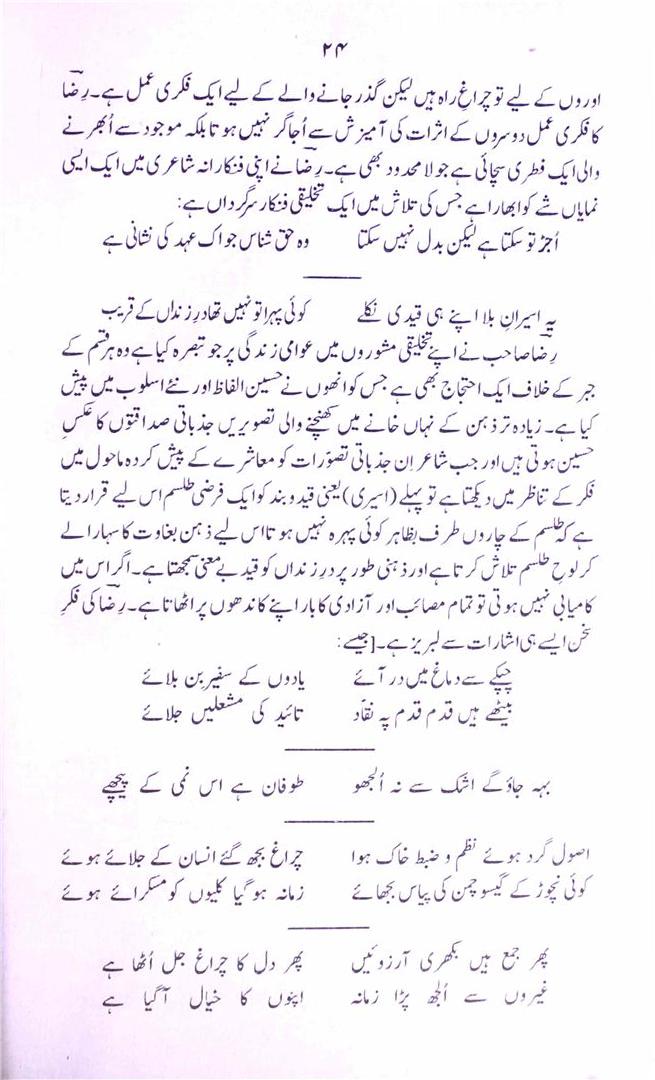 ۲۴
اوروں کے لیے تو چراغِ راہ ہیں لیکن گذر جانے والے کے لیے ایک فکری عمل ہے۔ رضاؔ
کا فکری عمل دوسروں کے اثرات کی آمیزش سے اُجاگر نہیں ہوتا بلکہ موجود سے اُبھرنے
والی ایک فطری سچائی ہے جو لا محدود بھی ہے۔ رضاؔ نے اپنی فنکارانہ شاعری میں ایک ایسی
نمایاں شے کو ابھارا ہے جس کی تلاش میں ایک تخلیقی فنکار سرگرداں ہے:
اُجڑ تو سکتا ہے لیکن بدل نہیں سکتا وہ حق شناس جو اک عہد کی نشانی ہے
یہ اسیرانِ بلا اپنے ہی قیدی نکلے کوئی پہرا تو نہیں تھا درِ زنداں کے قریب
رضاؔ صاحب نے اپنے تخلیقی مشوروں میں عوامی زندگی پر جو تبصرہ کیا ہے وہ ہر قسم کے
جبر کے خلاف ایک احتجاج بھی ہے جس کو انھوں نے حسین الفاظ اور نئے اسلوب میں پیش
کیا ہے۔ زیادہ تر ذہن کے نہاں خانے میں کھنچنے والی تصویریں جذباتی صداقتوں کا عکسِ
حسین ہوتی ہیں اور جب شاعر اِن جذباتی تصوّرات کو معاشرے کے پیش کردہ ماحول میں
فکر کے تناظر میں دیکھتا ہے تو پہلے (اسیری) یعنی قید و بند کو ایک فرضی طلسم اس لیے قرار دیتا
ہے کہ طلسم کے چاروں طرف بظاہر کوئی پہرہ نہیں ہوتا اس لیے ذہن بغاوت کا سہارا لے
کر لوحِ طلسم تلاش کرتا ہے اور ذہنی طور پر درِ زنداں کو قید بے معنی سمجھتا ہے۔ اگر اس میں
کامیابی نہیں ہوتی تو تمام مصائب اور آزادی کا بار اپنے کاندھوں پر اٹھاتا ہے۔ رضاؔ کی فکرِ
سخن ایسے ہی اشارات سے لبریز ہے۔ [جیسے:
چپکے سے دماغ میں در آئے یادوں کے سفیر بن بلائے
بیٹھے ہیں قدم قدم پہ نقّاد تائید کی مشعلیں جلائے
بہہ جاؤ گے اشک سے نہ اُلجھو طوفان ہے اس نمی کے پیچھے
اصول گرد ہوئے نظم و ضبط خاک ہوا چراغ بجھ گئے انسان کے جلائے ہوئے
کوئی نچوڑ کے گیسو چمن کی پیاس بجھائے زمانہ ہو گیا کلیوں کو مسکرائے ہوئے
پھر جمع ہیں بکھری آرزوئیں پھر دل کا چراغ جل اُٹھا ہے
غیروں سے اُلجھ پڑا زمانہ اپنوں کا خیال آ گیا ہے